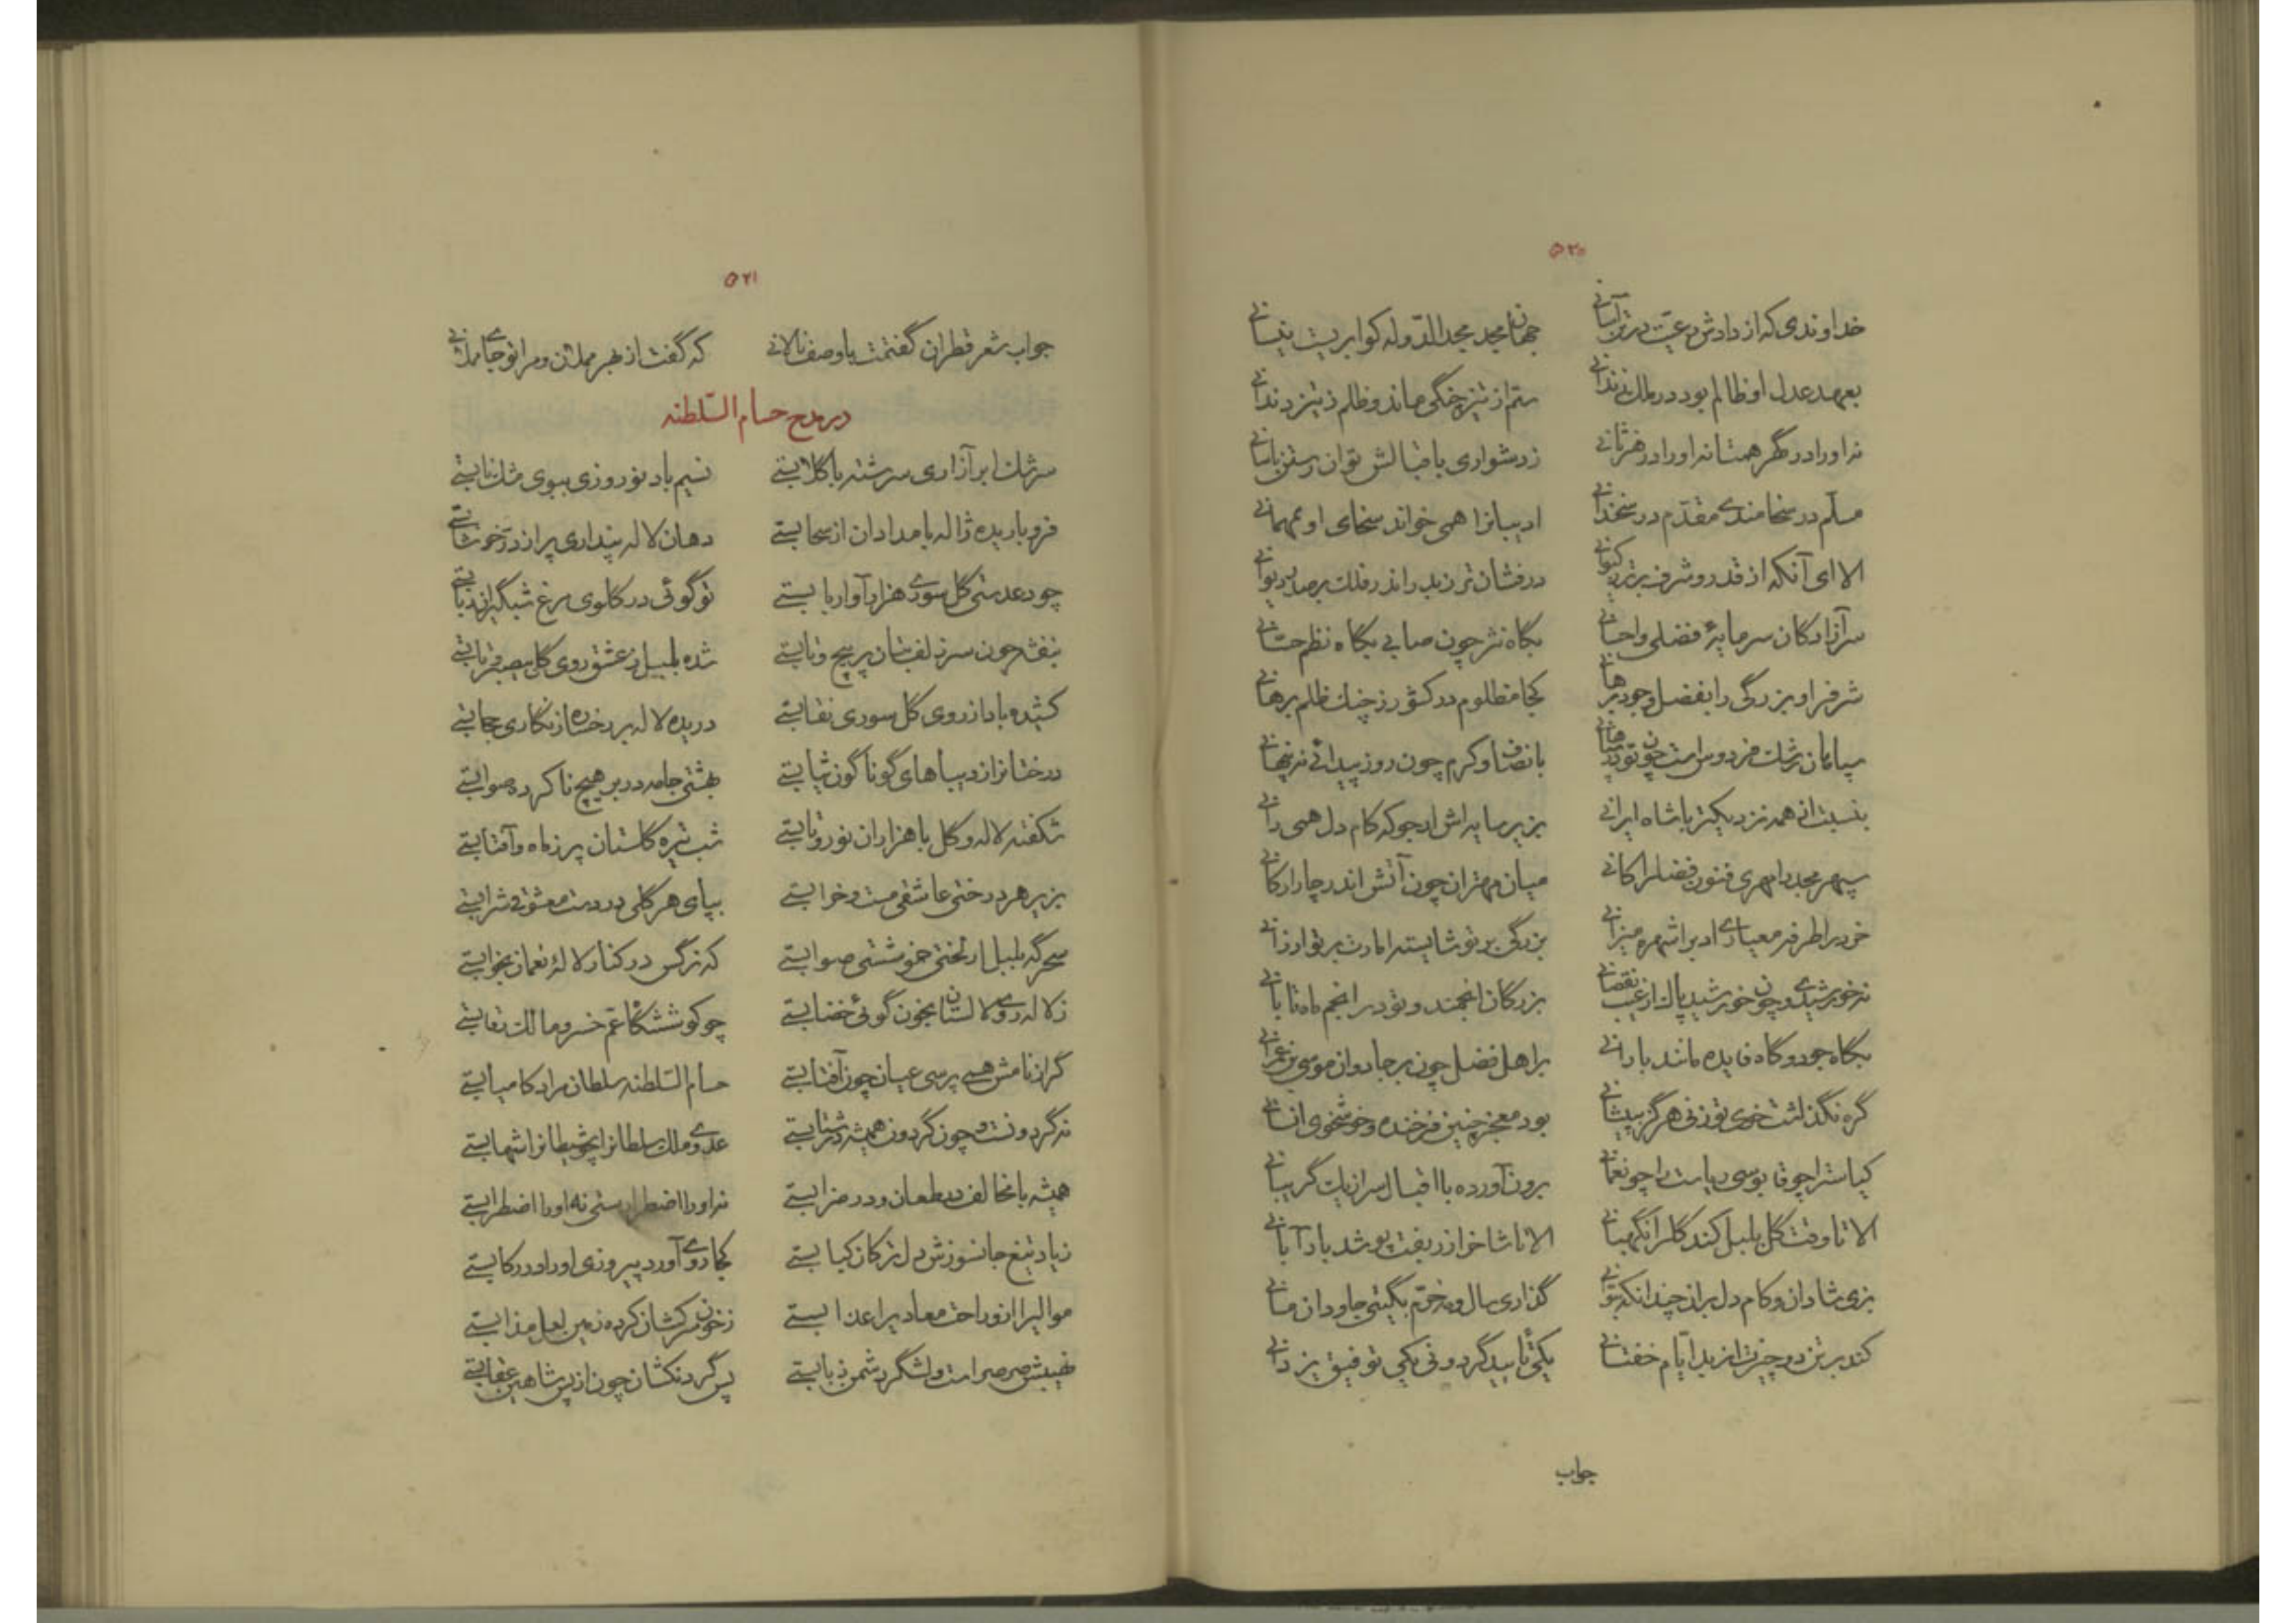 ۵۲۰
خداوندی که از دادش رعیت در تن آسانی جهان مجد مجد الدوله کو ابریست نیسانی
بعهد عدل او ظالم بود در ملک زندانی ستم از تیز چنگی ماند و ظلم از تیز دندانی
نه او را در گهر همتا نه او را در هنر ثانی ز دشواری باقبالش توان رستن باسانی
مسلم در سخامندی مقدم در سخندانی ادیبانرا همی خواند سخای او بمهمانی
الا ای آنکه از قدر و شرف برتر ز کیوانی درفشان تر زید را اندر فلک بر صدر دیوانی
سر آزادگان سرمایهٔ فضلی و احسانی بگاه نثر چون صابی بگاه نظم حسانی
شرف را و بزرگی را بفضل و جود برهانی کجا مظلوم در کشور ز چنک ظلم برهانی
بیابان رشک فردوس است چون تو در بیابانی بانصاف و کرم چون روز پیدائی نه پنهانی
بنسبت از همه نزدیکتر با شاه ایرانی بزیر سایه اش از جو که کام دل همی رانی
سپهر مجد را مهری فنون فضل را کانی میان مهتران چون آتش اندر چار ارکانی
خرد را طرفه معیاری ادب را شهره میزانی بزرگی بر تو شایسته امارت بر تو ارزانی
نه خورشیدی و چون خورشید پاک از عیب نقصانی بزرگان انجمند و تو در انجم ماه تابانی
بگاه جود و گاه فایده مانند بارانی بر اهل فضل چون بر جادوان موسی بن عمرانی
گره نگذاشت خوی تو زنی هرگز به پیشانی بود معجز چنین فرخنده و خوشخوی انسانی
کیاست را چو قابوسی ریاست را چو نعمانی برون آورده با اقبال سر از یک گریبانی
الا تا وقت گل بلبل کند گل را نگهبانی الا تا شاخ از زربفت پوشد باد آبانی
بزی شادان و کام دل بران چندانکه بتوانی گذاری سال و مه خرم بگیتی جاودان مانی
کند بر تن دو چیزت از بد ایام خفتانی یکی تأیید گردونی یکی توفیق یزدانی
جواب
۵۲۱
جواب شعر قطران گفتمت با وصف نالانی که گفت از بهر مملان و مر او را جای مملانی
در مدح حسام السلطنه
سرشک ابر آزاری سرشته با گلابستی نسیم باد نوروزی ببوی مشک نابستی
فرو باریده ژاله بامدادان از سحابستی دهان لاله پنداری پر از در خوشابستی
چو دعدستی گل سوری هزار آوا ربابستی تو گوئی در گلوی مرغ شبگیران ربابستی
بنفشه چون سر زلف بتان پر پیچ و تابستی شده بلبل ز عشق روی گل بیصبر و تابستی
کشیده باد از روی گل سوری نقابستی دریده لاله بر رخساره زنگاری حجابستی
درختانرا ز دیباهای گوناگون ثیابستی بهشتی جامه در بر هیچ ناکرده صوابستی
شکفته لاله و گل با هزاران نور و تابستی شب تیره گلستان پر ز ماه و آفتابستی
بزیر هر درختی عاشقی مست و خرابستی بپای هر گلی در دست معشوقی شرابستی
سحرگه بلبل ار لختی خموشستی صوابستی که نرگس در کنار لالهٔ نعمان بخوابستی
ز لاله روی لالستان بخون گوئی خضابستی چو کوشش‌گاه عم خسرو مالک رقابستی
گر از نامش همی پرسی عیان چون آفتابستی حسام السلطنه سلطان مراد کامیابستی
نه گردونست و چون گردون همیشه در شتابستی عدوی ملک سلطانرا چو شیطانرا شهابستی
همیشه با مخالف در طعان و در ضرابستی نه او را اضطرارستی نه او را اضطرابستی
زیاد تیغ جانسوزش دل ترکان کبابستی کجا روی آورد پیروزی او را در رکابستی
موالیرا ازو راحت معادیرا عذابستی ز خون سرکشان کرده زمین لعل مذابستی
نهیبش صرصر است و لشگر دشمن ذبابستی پس گردنکشان چون از پس شاهین عقابستی